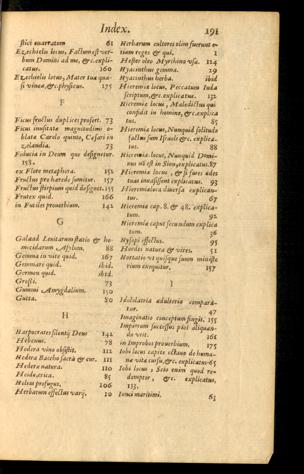 Index. 191
stici enarratum 61
Ezechielis locus, Factum est ver-
bum Domini ad me, &c. expli-
catus. 160
Ezechielis locus, Mater tua qua-
si vinea, &c. physicus. 175
F
Ficus fructus duplices profert. 73
Ficus inusitatæ magnitudinis o-
blata Carolo quinto, Cæsari in
zelandia. 73
Fiducia in Deum quo designetur.
158.
ex Flore metaphora. 152
Fructus pro hærede sumitur. 157
Fructus stirpium quid designet. 155
Frutex quid. 166
in Futiles proverbium. 142
G
Galaad Levitarum statio & ho-
micidarum Asylum. 88
Gemma in vite quid. 167
Gemmare quid. ibid.
Germen quid. ibid.
Grossi. 73
Gummi Amygdalinum. 150
Gutta. 80
H
Harpocrates silentij Deus 142
Hebenus. 78
Hedera vino obsistit. 112
Hedera Baccho sacra & cur. 111
Hederæ natura. 110
Hedera, 85
Helius profugus, 106
Herbarum effectus varij. 10
Herbarum cultores olim fuerunt e-
tiam reges & qui. 1
Hester oleo Myrrhino vsa. 124
Hyacinthus gemma. 29
Hyacinthus herba. ibid
Hieremiæ locus, Peccatum Iuda
scriptum, &c. explicatus. 132
Hieremiæ locus, Maledictus qui
confidit in homine, &c. explica
tus. 85
Hieremiæ locus, Nunquid solitudo
factus sum Israële &c. explica-
tus. 88
Hieremiæ locus, Nunquid Domi-
nus nõ est in Sion, explicatus. 87
Hieremiæ locus, & si fures ades
tuas invasissent explicatus. 93
Hieremiæ loca diversa explican-
tur. 67
Hieremiæ cap. 8. & 48. explica-
tum. 92
Hieremiæ caput secundum explica
tum. 56
Hysopi effectus. 95
Hordei natura & vires. 51
Hortatio vt quisque suum ministe
rium exequatur. 157
I
Idololatria adulterio compara-
tur. 47
Imaginatio conceptum fingit. 155
Impiorum successus pÿs aliquan-
do vrit. 161
in Improbos proverbium. 175
Iobi locus capite octavo de huma-
na vita cursu, &c. explicatus. 65
Iobi locus, Scio enim quod re-
demptor, &c. explicatus,
133,
Iunci maritimi. 63